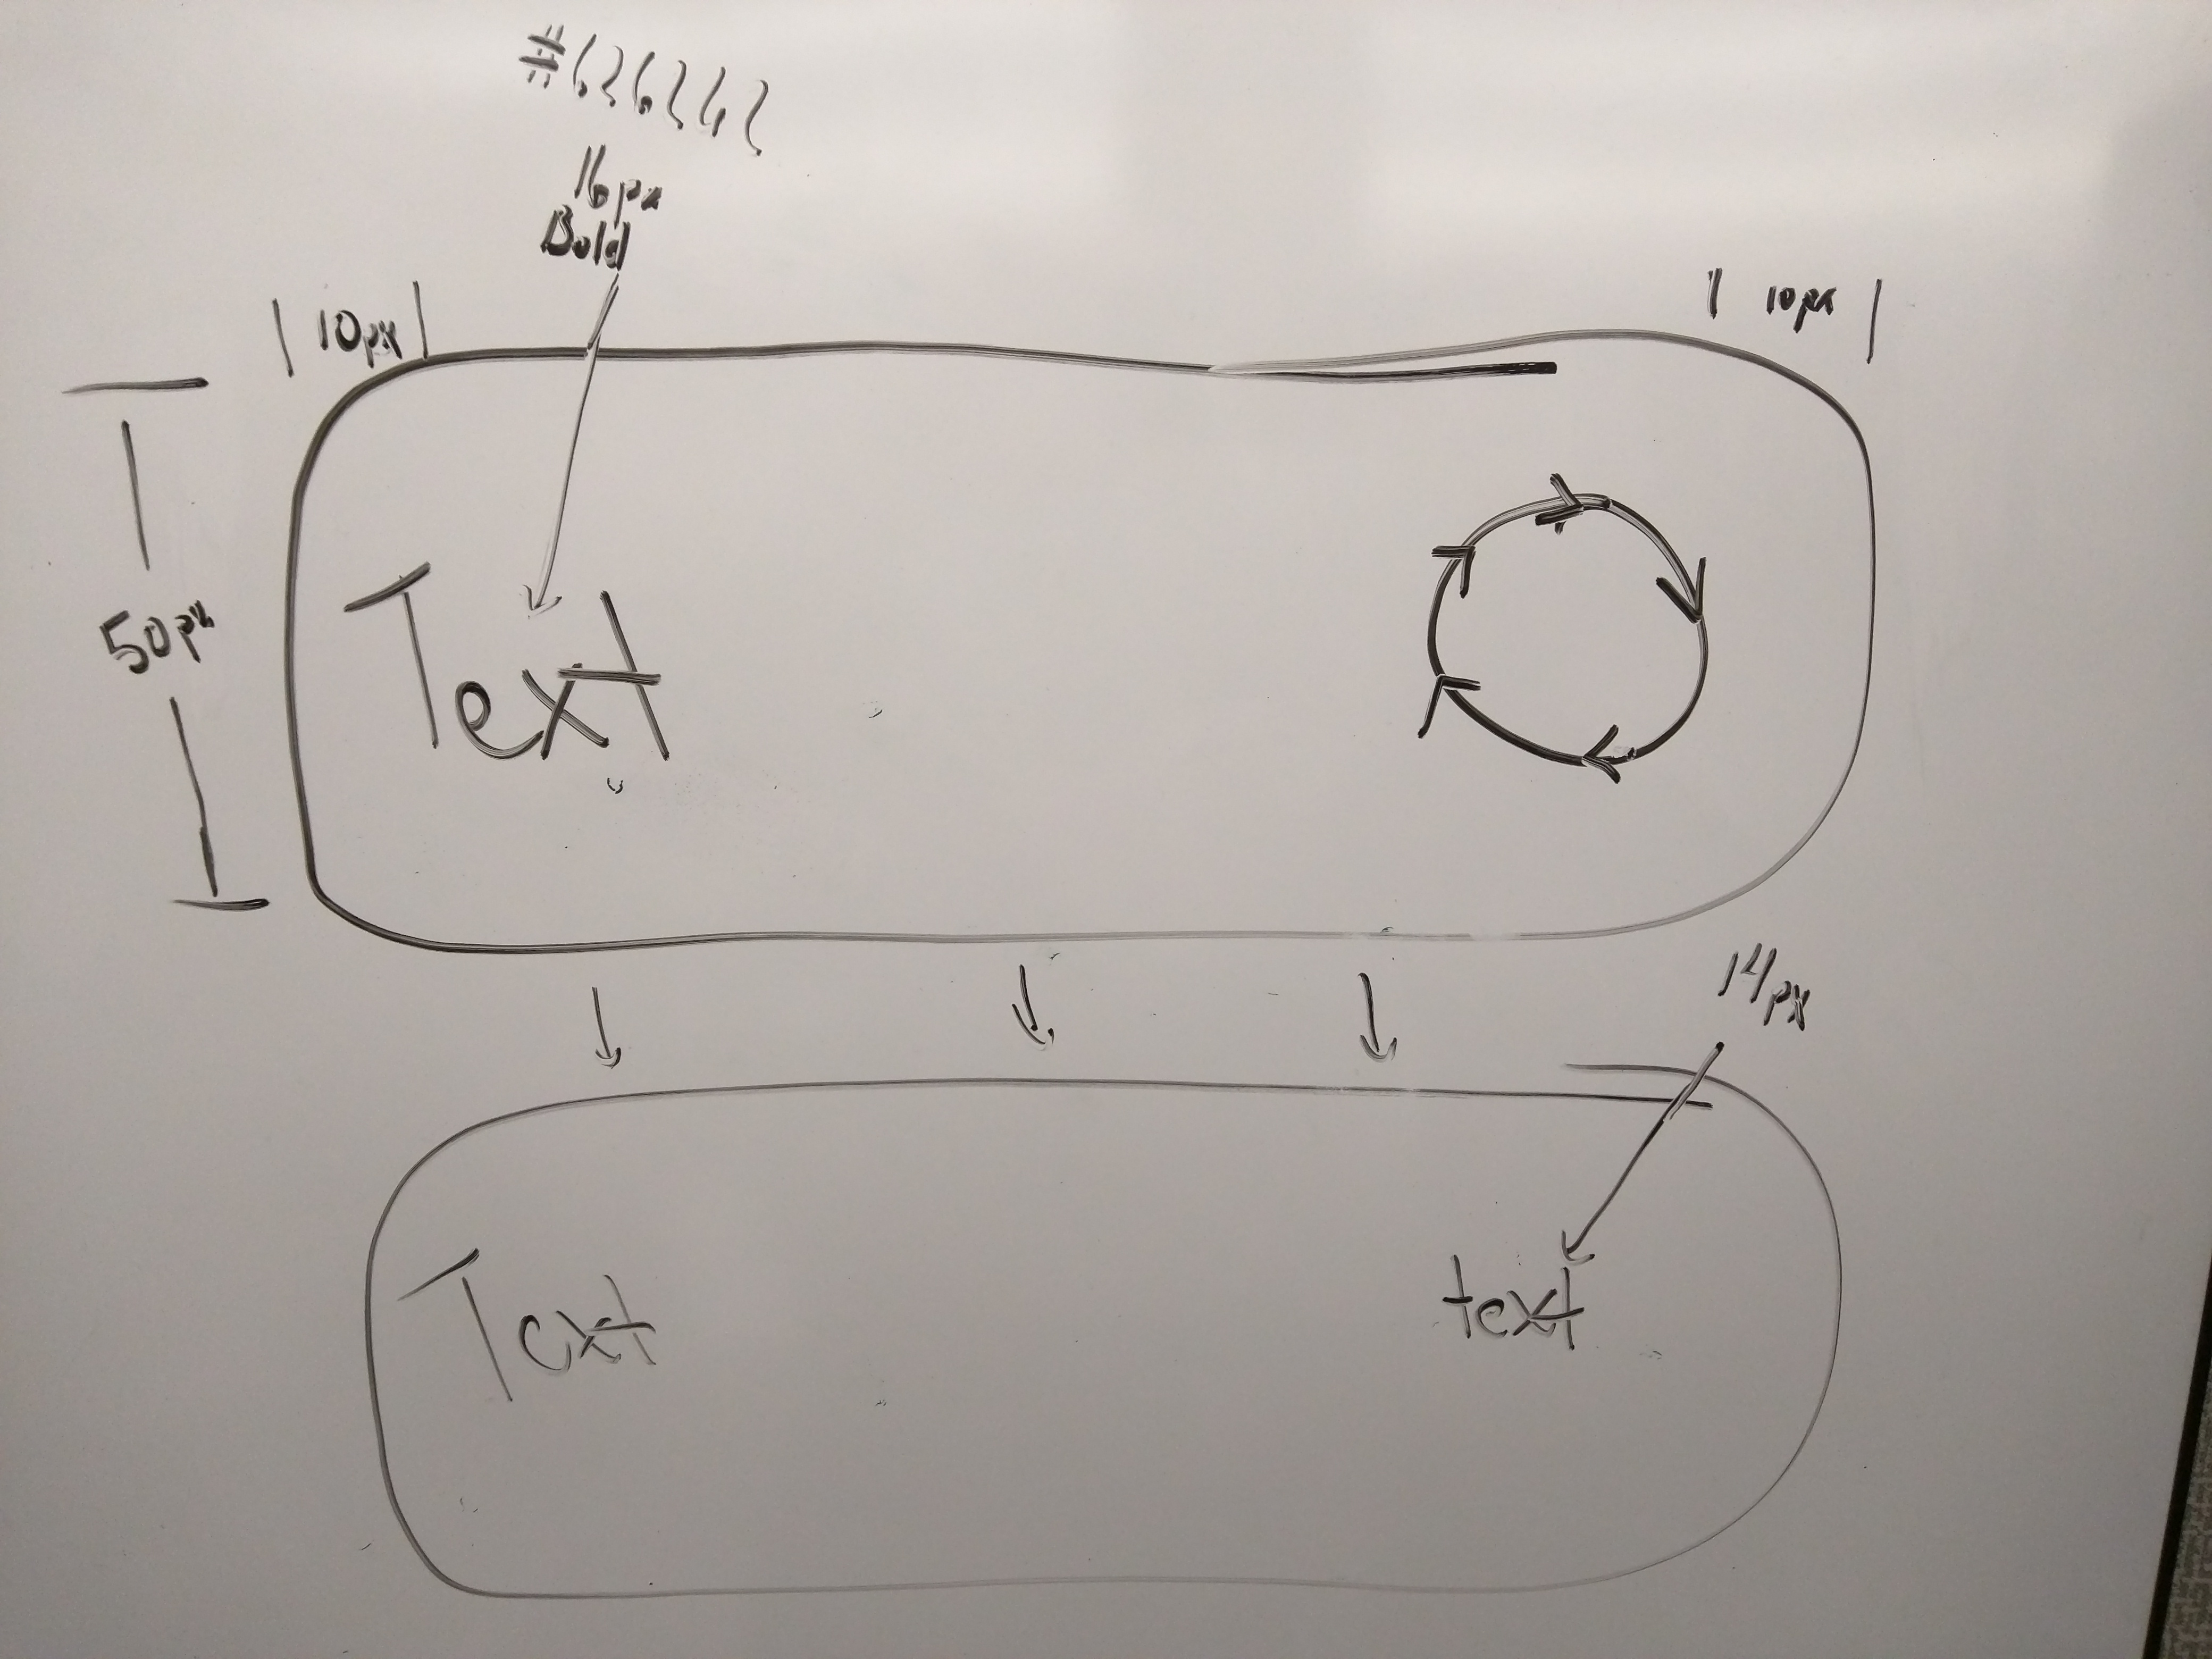 #626262
16px
Bold
10px
10px
50px
Text
14px
Text
text